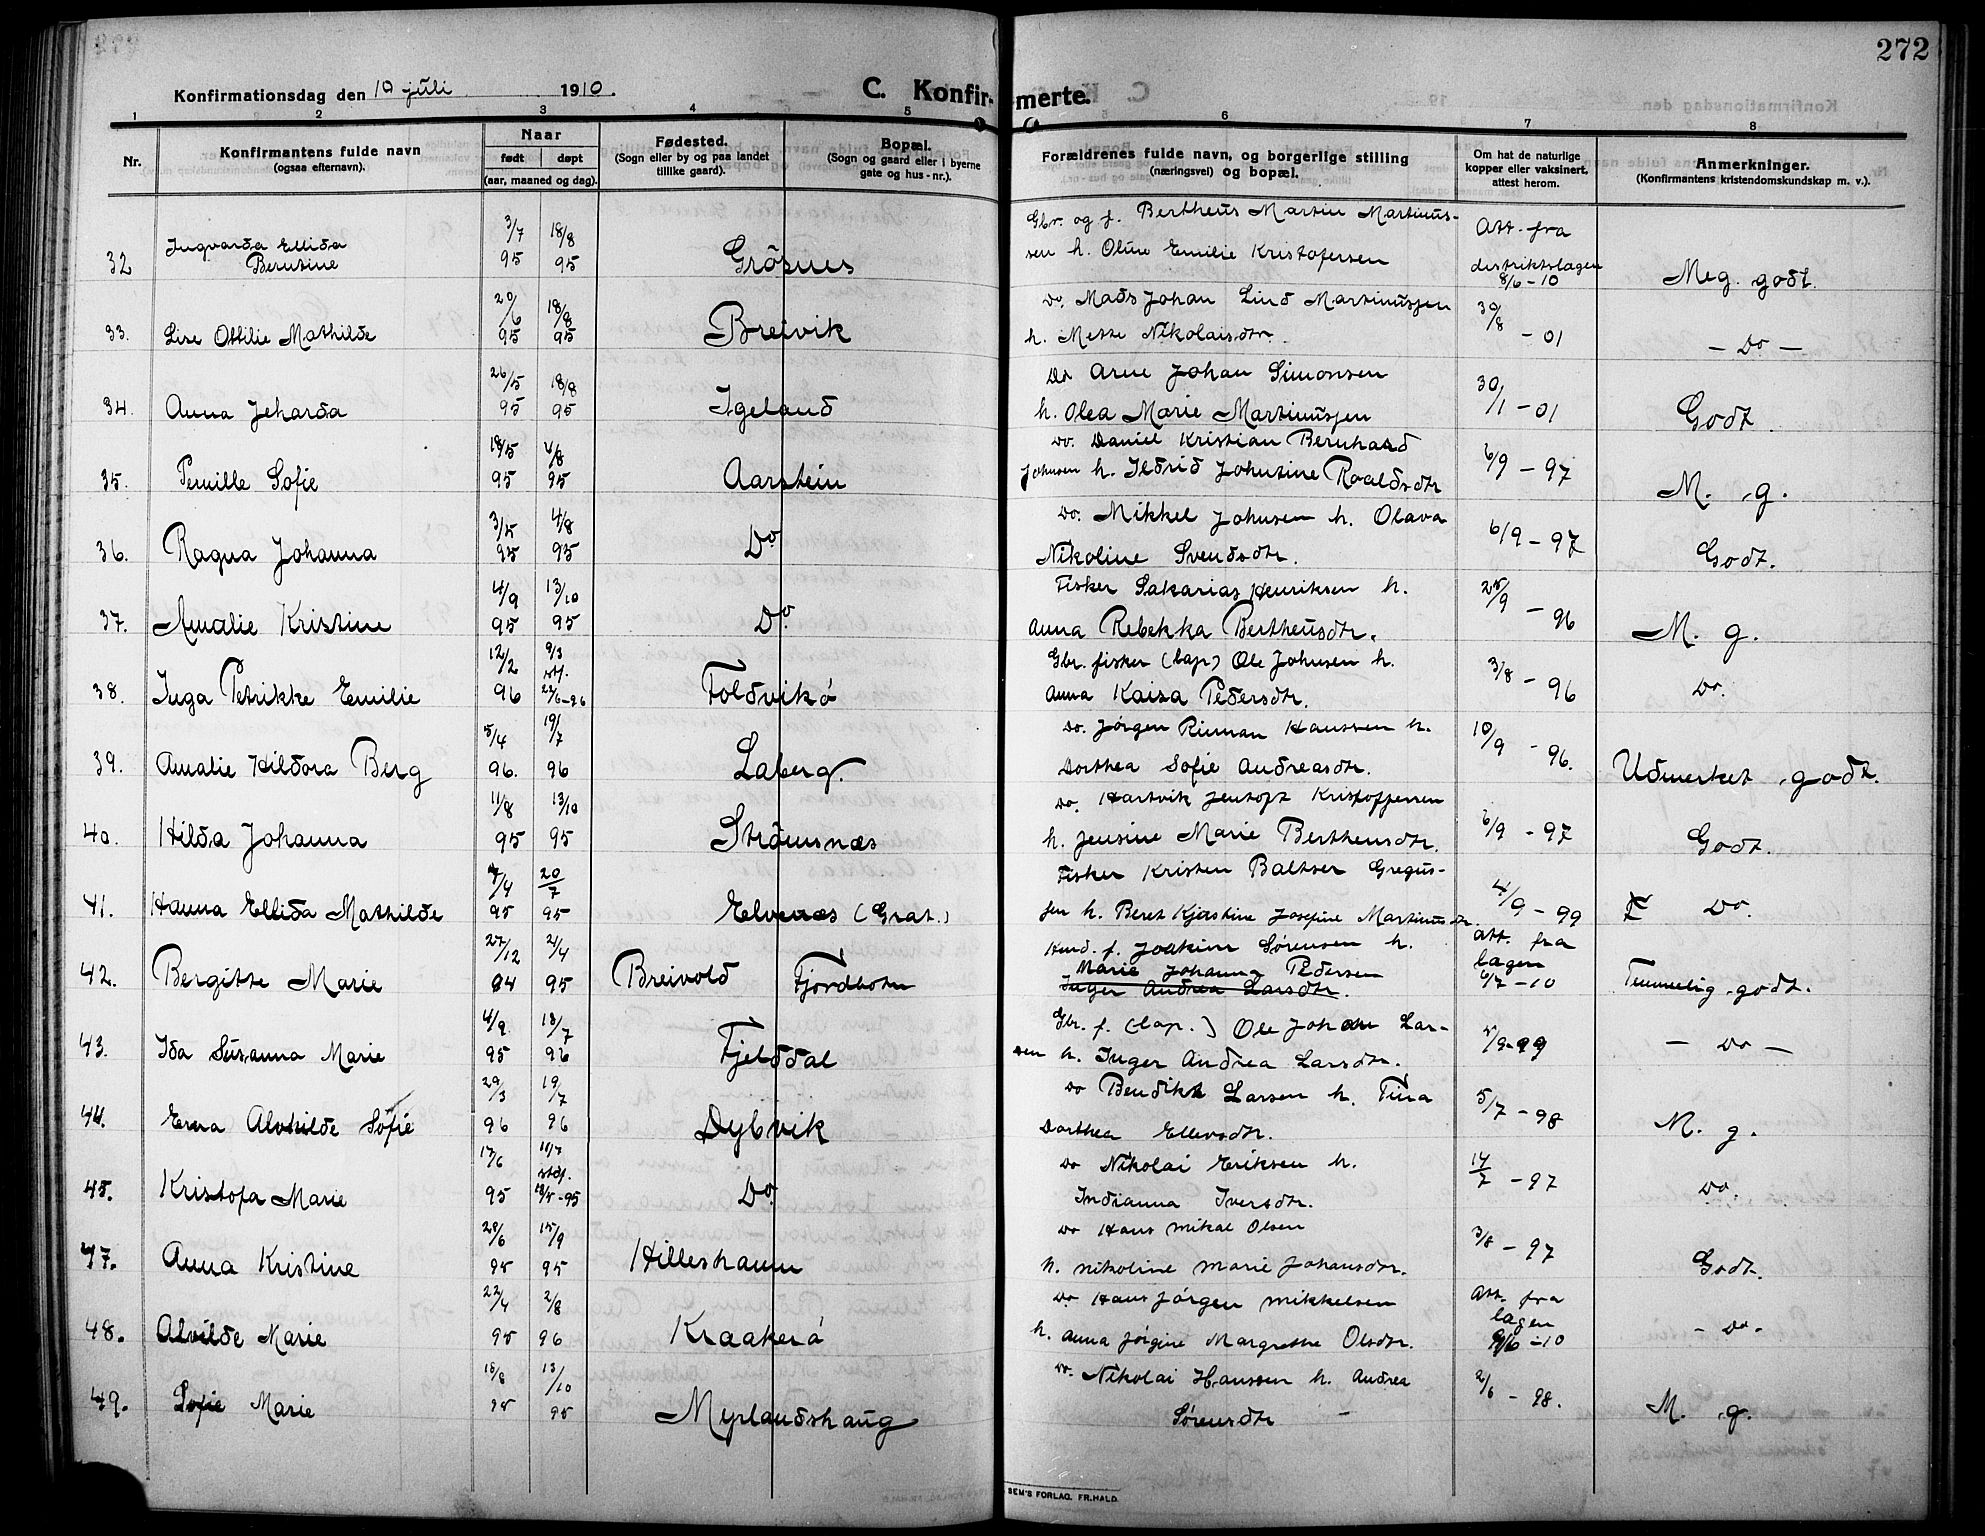 272
Konfirmationsdag den 10 juli 1910. C. Konfirmerte.
1 2 3 4 5 6 7 8
Nr.
Konfirmantens fulde navn
(ogsaa efternavn).
Naar
født døpt
(aar, maaned og dag).
Fødested.
(Sogn eller by og paa landet
tillike gaard).
Bopæl.
(Sogn og gaard eller i byerne
gate og hus-nr.).
Forældrenes fulde navn, og borgerlige stilling
(næringsvei) og bopæl.
Om hat de naturlige
kopper eller vaksinert,
attest herom.
Anmerkninger.
(Konfirmantens kristendomskundskap m. v.).
32 Ingvarda Ellida Berntine 3/7 95 18/8 95 Grøsnes Gbr. og f. Bertheus Martin Martinus-
sen h. Oline Emilie Kristofersen Att. fra distriktslægen 8/6-10 Meg. godt.
33. Lise Ottilie Mathilde 20/6 95 18/8 95 Breivik Do. Mads Johan Lind Martinussen
h. Mette Nikolaisdtr. 30/8 - 01 - Do -
34. Anna Jeharda 26/5 95 18/8 95 Igeland Do Arne Johan Simonsen
h. Olea Marie Martinussen 30/1 - 01 Godt.
35. Pernille Sofie 18/5 95 4/8 95 Aarstein Do. Daniel Kristian Bernhard
Johnsen h. Ildrid Johntine Roaldsdtr 6/9 - 97 M. g.
36. Ragna Johanna 3/5 95 4/8 95 Do Do. Mikkel Johnsen h. Olava
Nikoline Svendsdtr. 6/9 - 97 Godt.
37. Amalie Kristine 4/9 95 13/10 95 Do. Fisker Sakarias Henriksen h.
Anna Rebekka Bertheusdtr. 25/9 - 96 M. g.
38. Inga Petrikke Emilie 12/2 96 9/3 stf. 25/6-96 Foldvikø Gbr. fisker (lap) Ole Johnsen h.
Anna Kaisa Pedersdtr. 3/8 - 96 Do.
39. Amalie Hildora Berg 5/4 96. 19/7 96 Laberg. Do. Jørgen Rinnan Hanssen h.
Dorthea Sofie Andreasdtr. 10/9 - 96. Udmerket godt.
40. Hilda Johanna 11/8 95 13/10 95 Strømnæs Do. Hartvik Jentoft Kristoffersen
h. Jensine Marie Bertheusdtr. 6/9 - 97 Godt.
41. Hanna Ellida Mathilde 7/4 95 20/7 95 Elvenæs (Grat.) Fisker Kristen Baltser Gregus-
sen h. Beret Kjerstine Josefine Martinusdtr. 4/9 - 99 Do.
42. Bergitte Marie 27/12 94 21/4 95 Breivold Fjordbotn f. Joakim Sørensen h.
Marie Johanna Pedersen
Inger Andrea Larsdtr. Att. fra lægen 6/7-10 Temmelig godt.
43. Ida Susanna Marie 4/9 95 18/7 96 Fjelddal Gbr. f. (lap.) Ole Johan Lar-
sen h. Inger Andrea Larsdtr. 5/9-99 - Do -
44. Erna Alvhilde Sofie 29/3 96 19/7 96 Dybvik Do Bendikt Larsen h. Tina
Dorthea Ellevsdtr. 5/7 - 98 M. g.
45. Kristofa Marie 17/6 95 stdf. 18/8-95 Do Do Nikolai Eriksen h.
Indianna Iversdtr. 14/7 - 97 Do.
47. Anna Kristine 28/6 95 15/9 95 Hilleshamn Do Hans Mikal Olsen
h. Nikoline Marie Johansdtr. 3/8 - 97 Godt.
48. Alvilde Marie 22/4 95 2/8 96 Kraakerø Do. Hans Jørgen Mikkelsen
h. Anna Jørgine Margrethe Olsdtr. Att. fra lægen 9/6-10 - Do -
49. Sofie Marie 18/8 95 13/10 95 Myrlandshaug Do. Nikolai Hanssen h. Andrea
Sørensdtr - 2/6 - 98. M. g.
SEM'S FORLAG, FR.HALD.